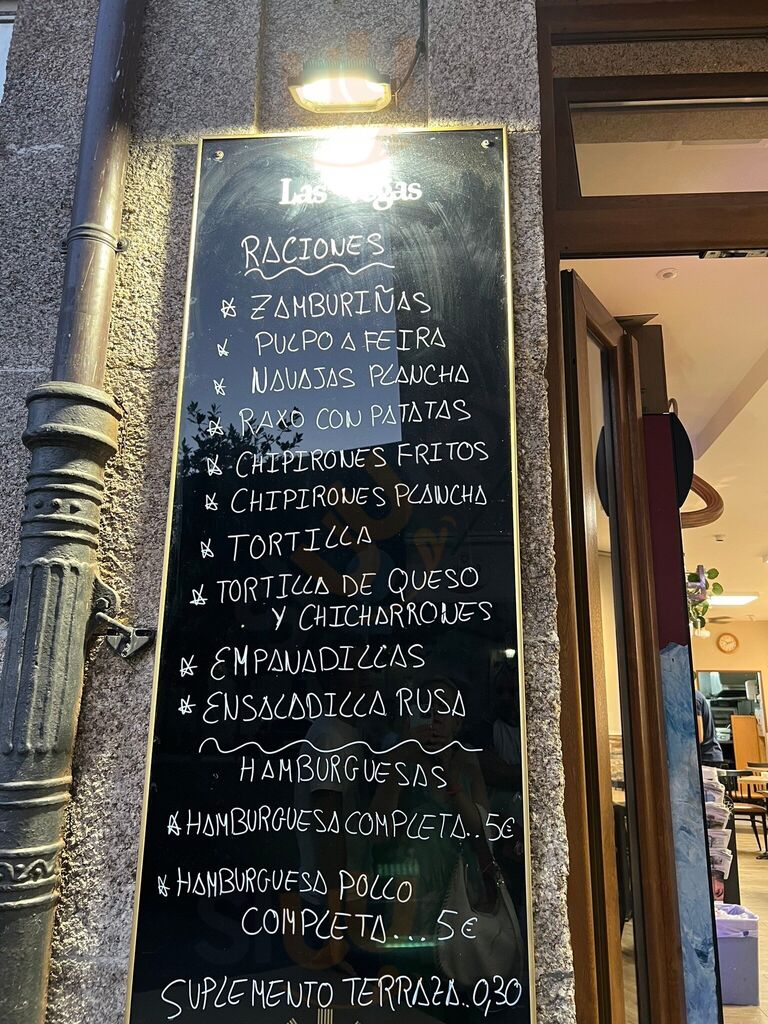 Las Vegas
RACIONES
* ZAMBURIÑAS
* PULPO A FEIRA
* NAVAJAS PLANCHA
* RAXO CON PATATAS
* CHIPIRONES FRITOS
* CHIPIRONES PLANCHA
* TORTILLA
* TORTILLA DE QUESO
Y CHICHARRONES
* EMPANADILLAS
* ENSALADILLA RUSA
HAMBURGUESAS
* HAMBURGUESA COMPLETA..5€
* HAMBURGUESA POLLO
COMPLETA...5€
SUPLEMENTO TERRAZA..0,30